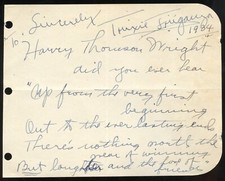 Sincerely Trixie Friganza
To 1924
Harry Thomson Wright
did you ever hear
"Up from the very first
beginning
Out to the everlasting end
There's nothing worth the
wear of winning
But laughter and the love of
friends